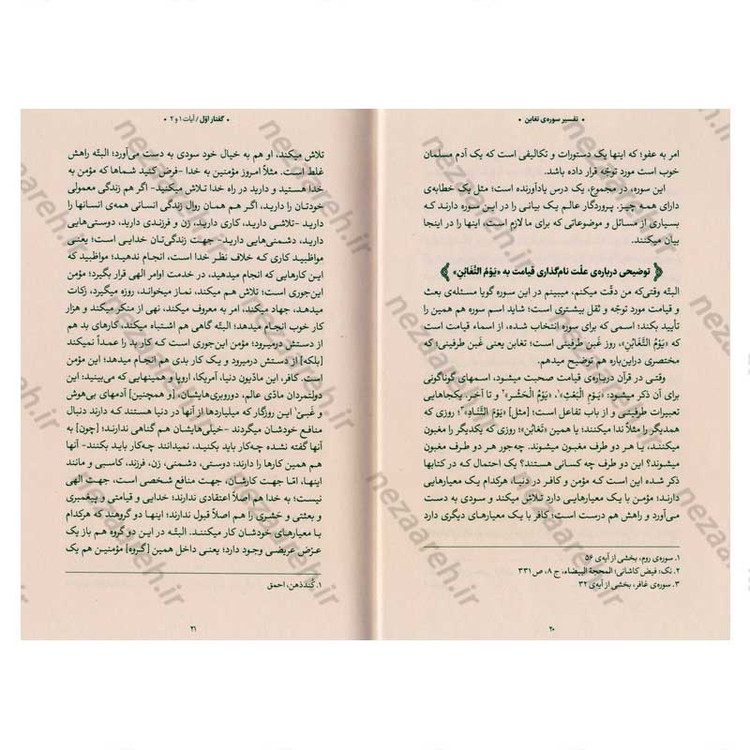 • تفسیر سوره‌ی تغابن •
امر به عفو؛ که اینها یک دستورات و تکالیفی است که یک آدم مسلمان
خوب است مورد توجّه قرار داده باشد.
این سوره، در مجموع، یک درس یادآورنده است؛ مثل یک خطابه‌ی
دارای همه چیز. پروردگار عالم یک بیانی را در این سوره دارند که
بسیاری از مسائل و موضوعاتی که برای ما لازم است، اینها را در اینجا
بیان میکنند.
توضیحی درباره‌ی علّت نام‌گذاری قیامت به «یَوْمُ التَّغابُنِ»
البتّه وقتی‌که من دقّت میکنم، میبینم در این سوره گویا مسئله‌ی بعث
و قیامت مورد توجّه و ثقل بیشتری است؛ شاید اسم سوره هم همین را
تأیید بکند؛ اسمی که برای سوره انتخاب شده، از اسماء قیامت است
که «یَوْمُ التَّغابُنِ»، روز غبن طرفینی است؛ تغابن یعنی غَبن طرفینی؛ که
مختصری دراین‌باره هم توضیح میدهم.
وقتی در قرآن درباره‌ی قیامت صحبت میشود، اسمهای گوناگونی
برای آن ذکر میشود: «یَومُ الْبَعْثِ»۱، «یَوْمُ الْحَشْرِ»۲ و تا آخر. یکجاهایی
تعبیرات طرفینی و از باب تفاعل است؛ [مثل] «یَوْمَ التَّنادِ»۳؛ روزی که
همدیگر را مثلاً ندا میکنند؛ یا همین «تَغابُن»؛ روزی که یکدیگر را مغبون
میکنند، یا هر دو طرف مغبون میشوند. چه‌جور هر دو طرف مغبون
میشوند؟ این دو طرف چه کسانی هستند؟ یک احتمال که در کتابها
ذکر شده این است که مؤمن و کافر در دنیا، هرکدام یک معیارهایی
دارند؛ مؤمن با یک معیارهایی دارد تلاش میکند و سودی به دست
می‌آورد و راهش هم درست است؛ کافر با یک معیارهای دیگری دارد
۱. سوره‌ی روم، بخشی از آیه‌ی ۵۶
۲. نک: فیض کاشانی؛ المحجة البیضاء، ج ۸، ص ۳۳۱
۳. سوره‌ی غافر، بخشی از آیه‌ی ۳۲
۲۰
• گفتار اوّل / آیات ۱ و ۲ •
تلاش میکند، او هم به خیال خود سودی به دست می‌آورد؛ البتّه راهش
غلط است. مثلاً امروز مؤمنین به خدا -فرض کنید شماها که مؤمن به
خدا هستید و دارید در راه خدا تلاش میکنید- اگر هم زندگی معمولی
خودتان را دارید، اگر هم بر همان روال زندگی انسانی همه‌ی انسانها را
دارید -تلاشی دارید، کاری دارید، زن و فرزندی دارید، دوستی‌هایی
دارید، دشمنی‌هایی دارید- جهت زندگی‌تان خدایی است؛ یعنی
مواظبید کاری که خلاف نظر خدا است، انجام ندهید؛ مواظبید که
این کارهایی که انجام میدهید، در خدمت اوامر الهی قرار بگیرد؛ مؤمن
این‌جوری است؛ تلاش هم میکند، نماز میخواند، روزه میگیرد، زکات
میدهد، جهاد میکند، امر به معروف میکند، نهی از منکر میکند و هزار
کار خوب انجام میدهد؛ البتّه گاهی هم اشتباه میکند، کارهای بد هم
از دستش درمیرود؛ مؤمن این‌جوری است که کار بد را عمداً نمیکند
[بلکه] از دستش درمیرود و یک کار بدی هم انجام میدهد؛ این مؤمن
است. کافر، این مادّیون دنیا، آمریکا، اروپا و همینهایی که می‌بینید؛ این
دولتمردان مادّی عالم، دوروبری‌هایشان، [و همچنین] آدمهای بی‌هوش
و غَبیّ۱ این روزگار که میلیاردها از آنها در دنیا هستند که دارند دنبال
منافع خودشان میگردند -خیلی‌هایشان هم گناهی ندارند؛ [چون] به
آنها گفته نشده چه‌کار باید بکنید، نمیدانند چه‌کار باید بکنند- آنها
هم همین کارها را دارند: دوستی، دشمنی، زن، فرزند، کاسبی و مانند
اینها، امّا جهت کارشان، جهت منافع شخصی است، جهت الهی
نیست؛ به خدا هم اصلاً اعتقادی ندارند؛ خدایی و قیامتی و پیغمبری
و بعثتی و حَشری را هم اصلاً قبول ندارند؛ اینها دو گروهند که هرکدام
با معیارهای خودشان کار میکنند. البتّه در این دو گروه هم باز یک
عرْض عریضی وجود دارد؛ یعنی داخل همین [گروه] مؤمنین هم یک
۱. کُندذهن، احمق
۲۱
nezaareh.ir